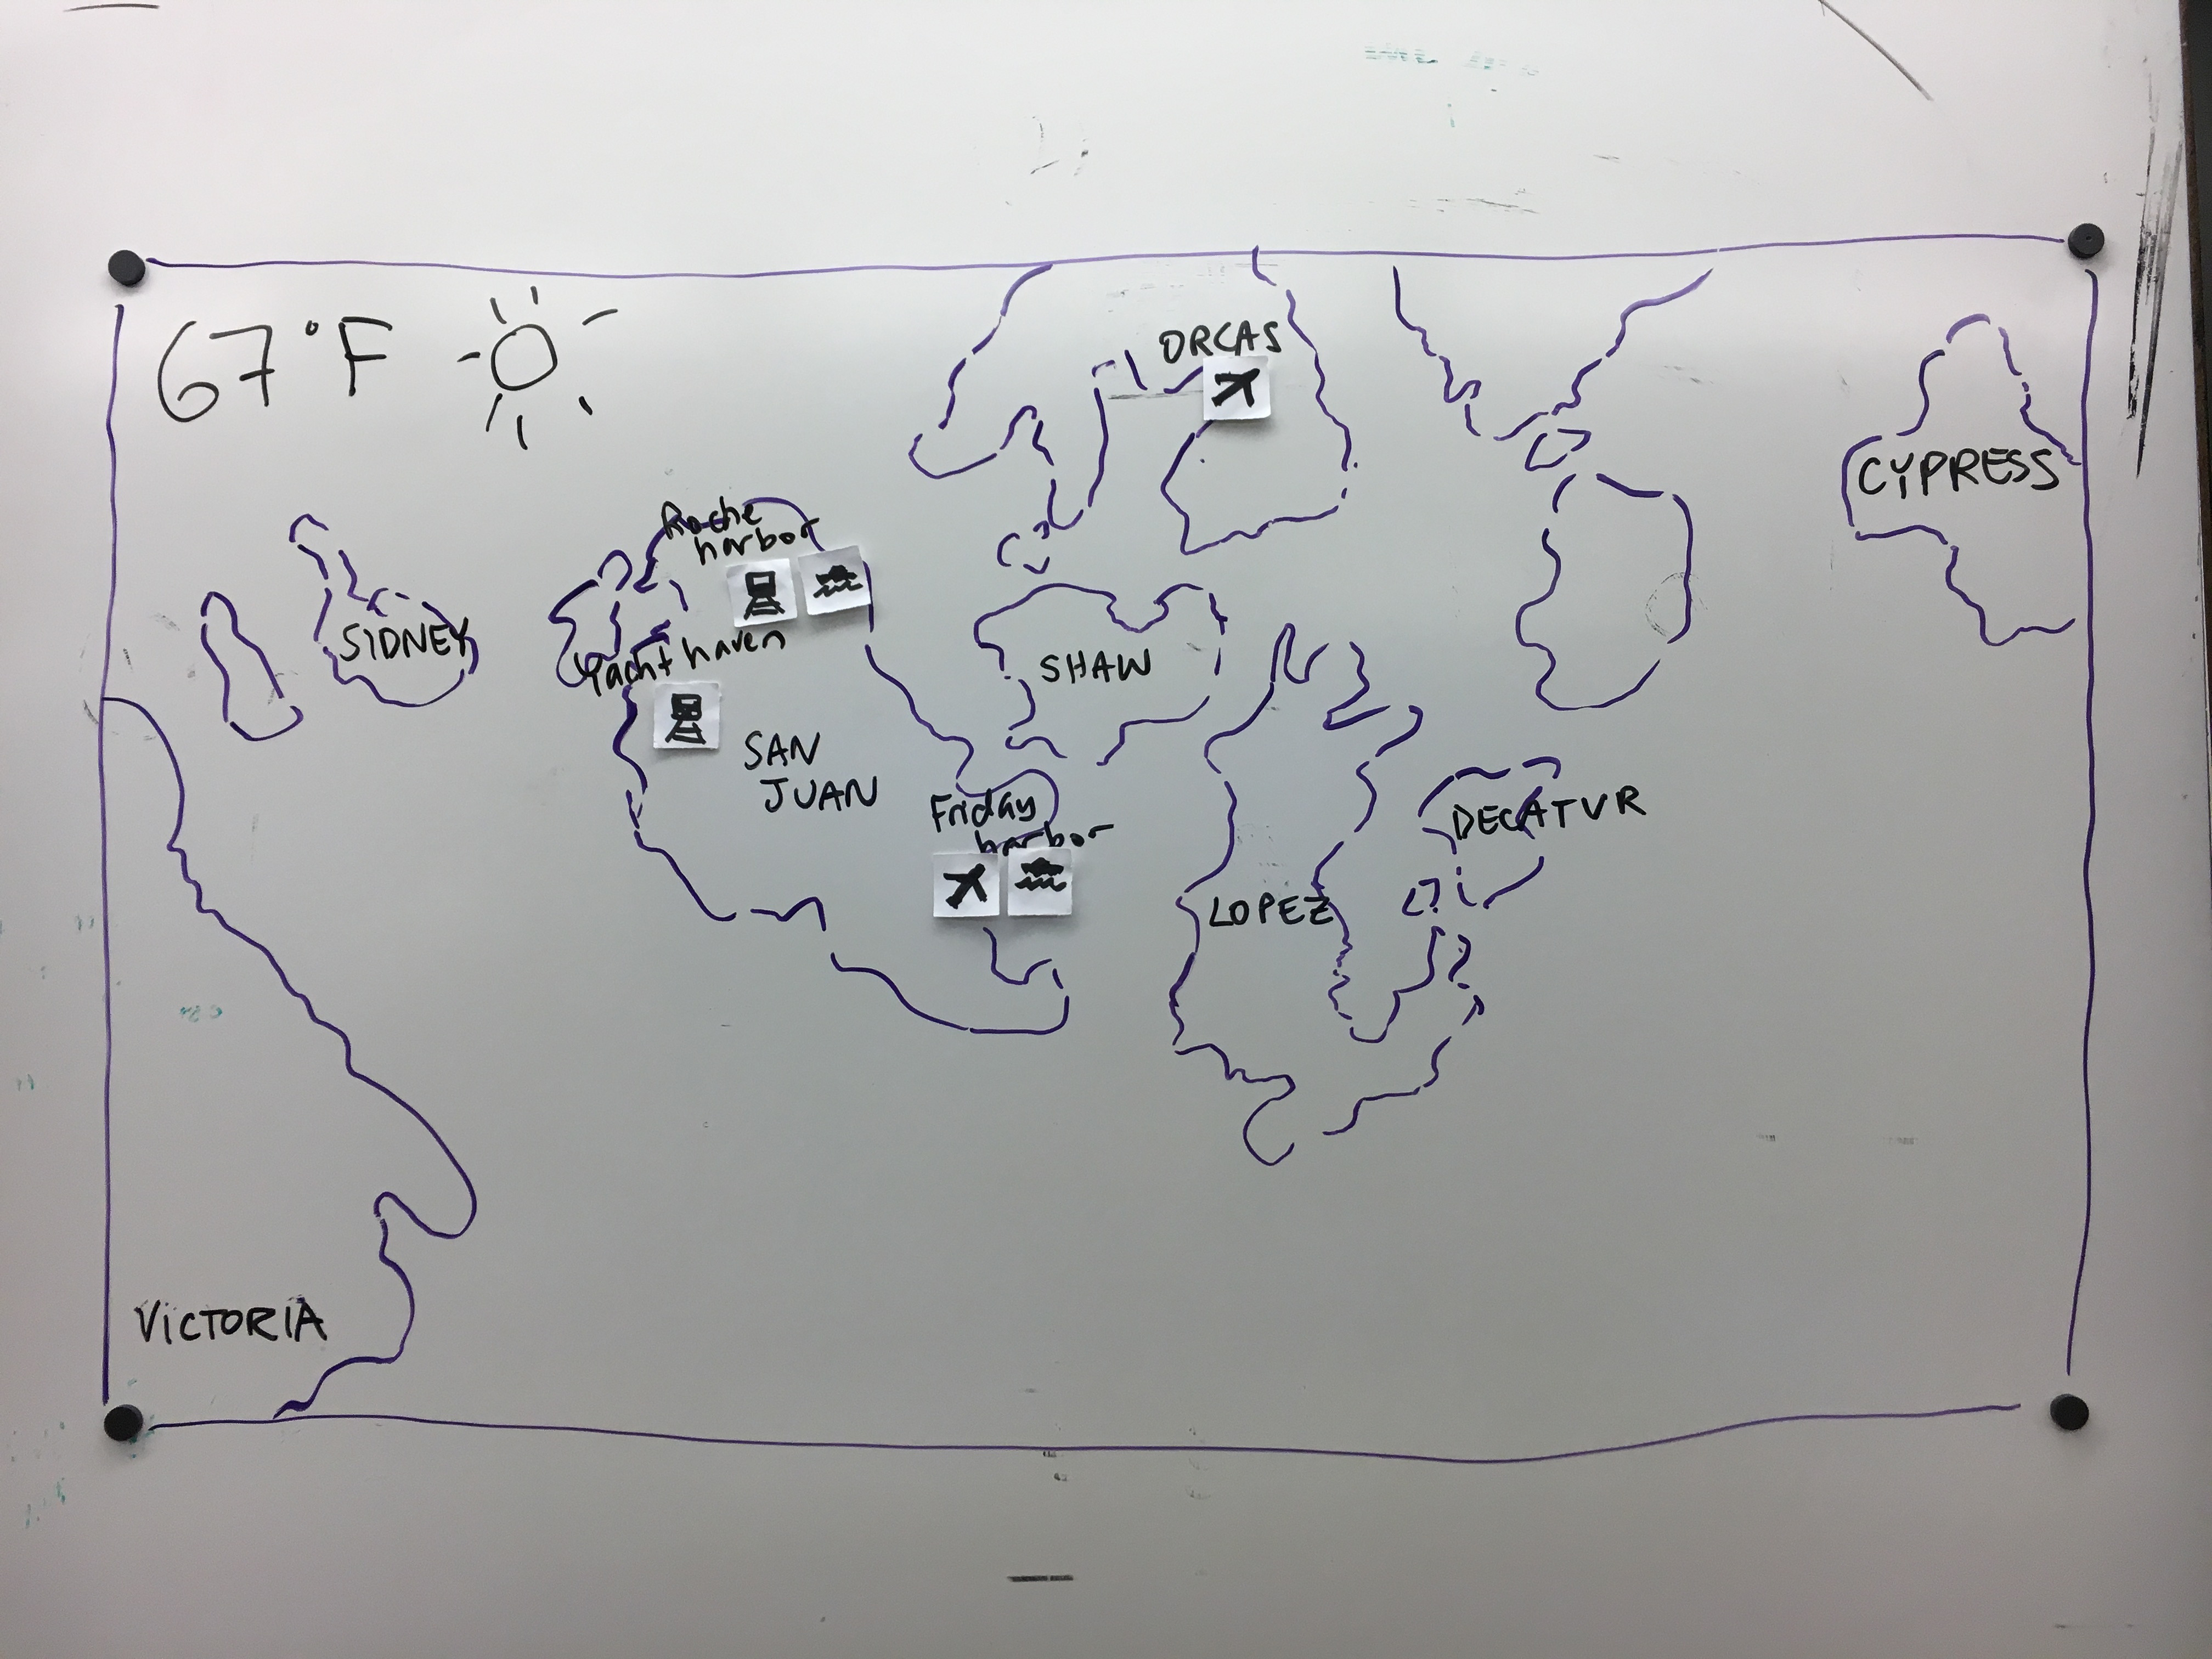 67°F
ORCAS
CYPRESS
Roche
harbor
SIDNEY
Yacht haven
SHAW
SAN
JUAN
Friday
harbor
DECATUR
LOPEZ
VICTORIA